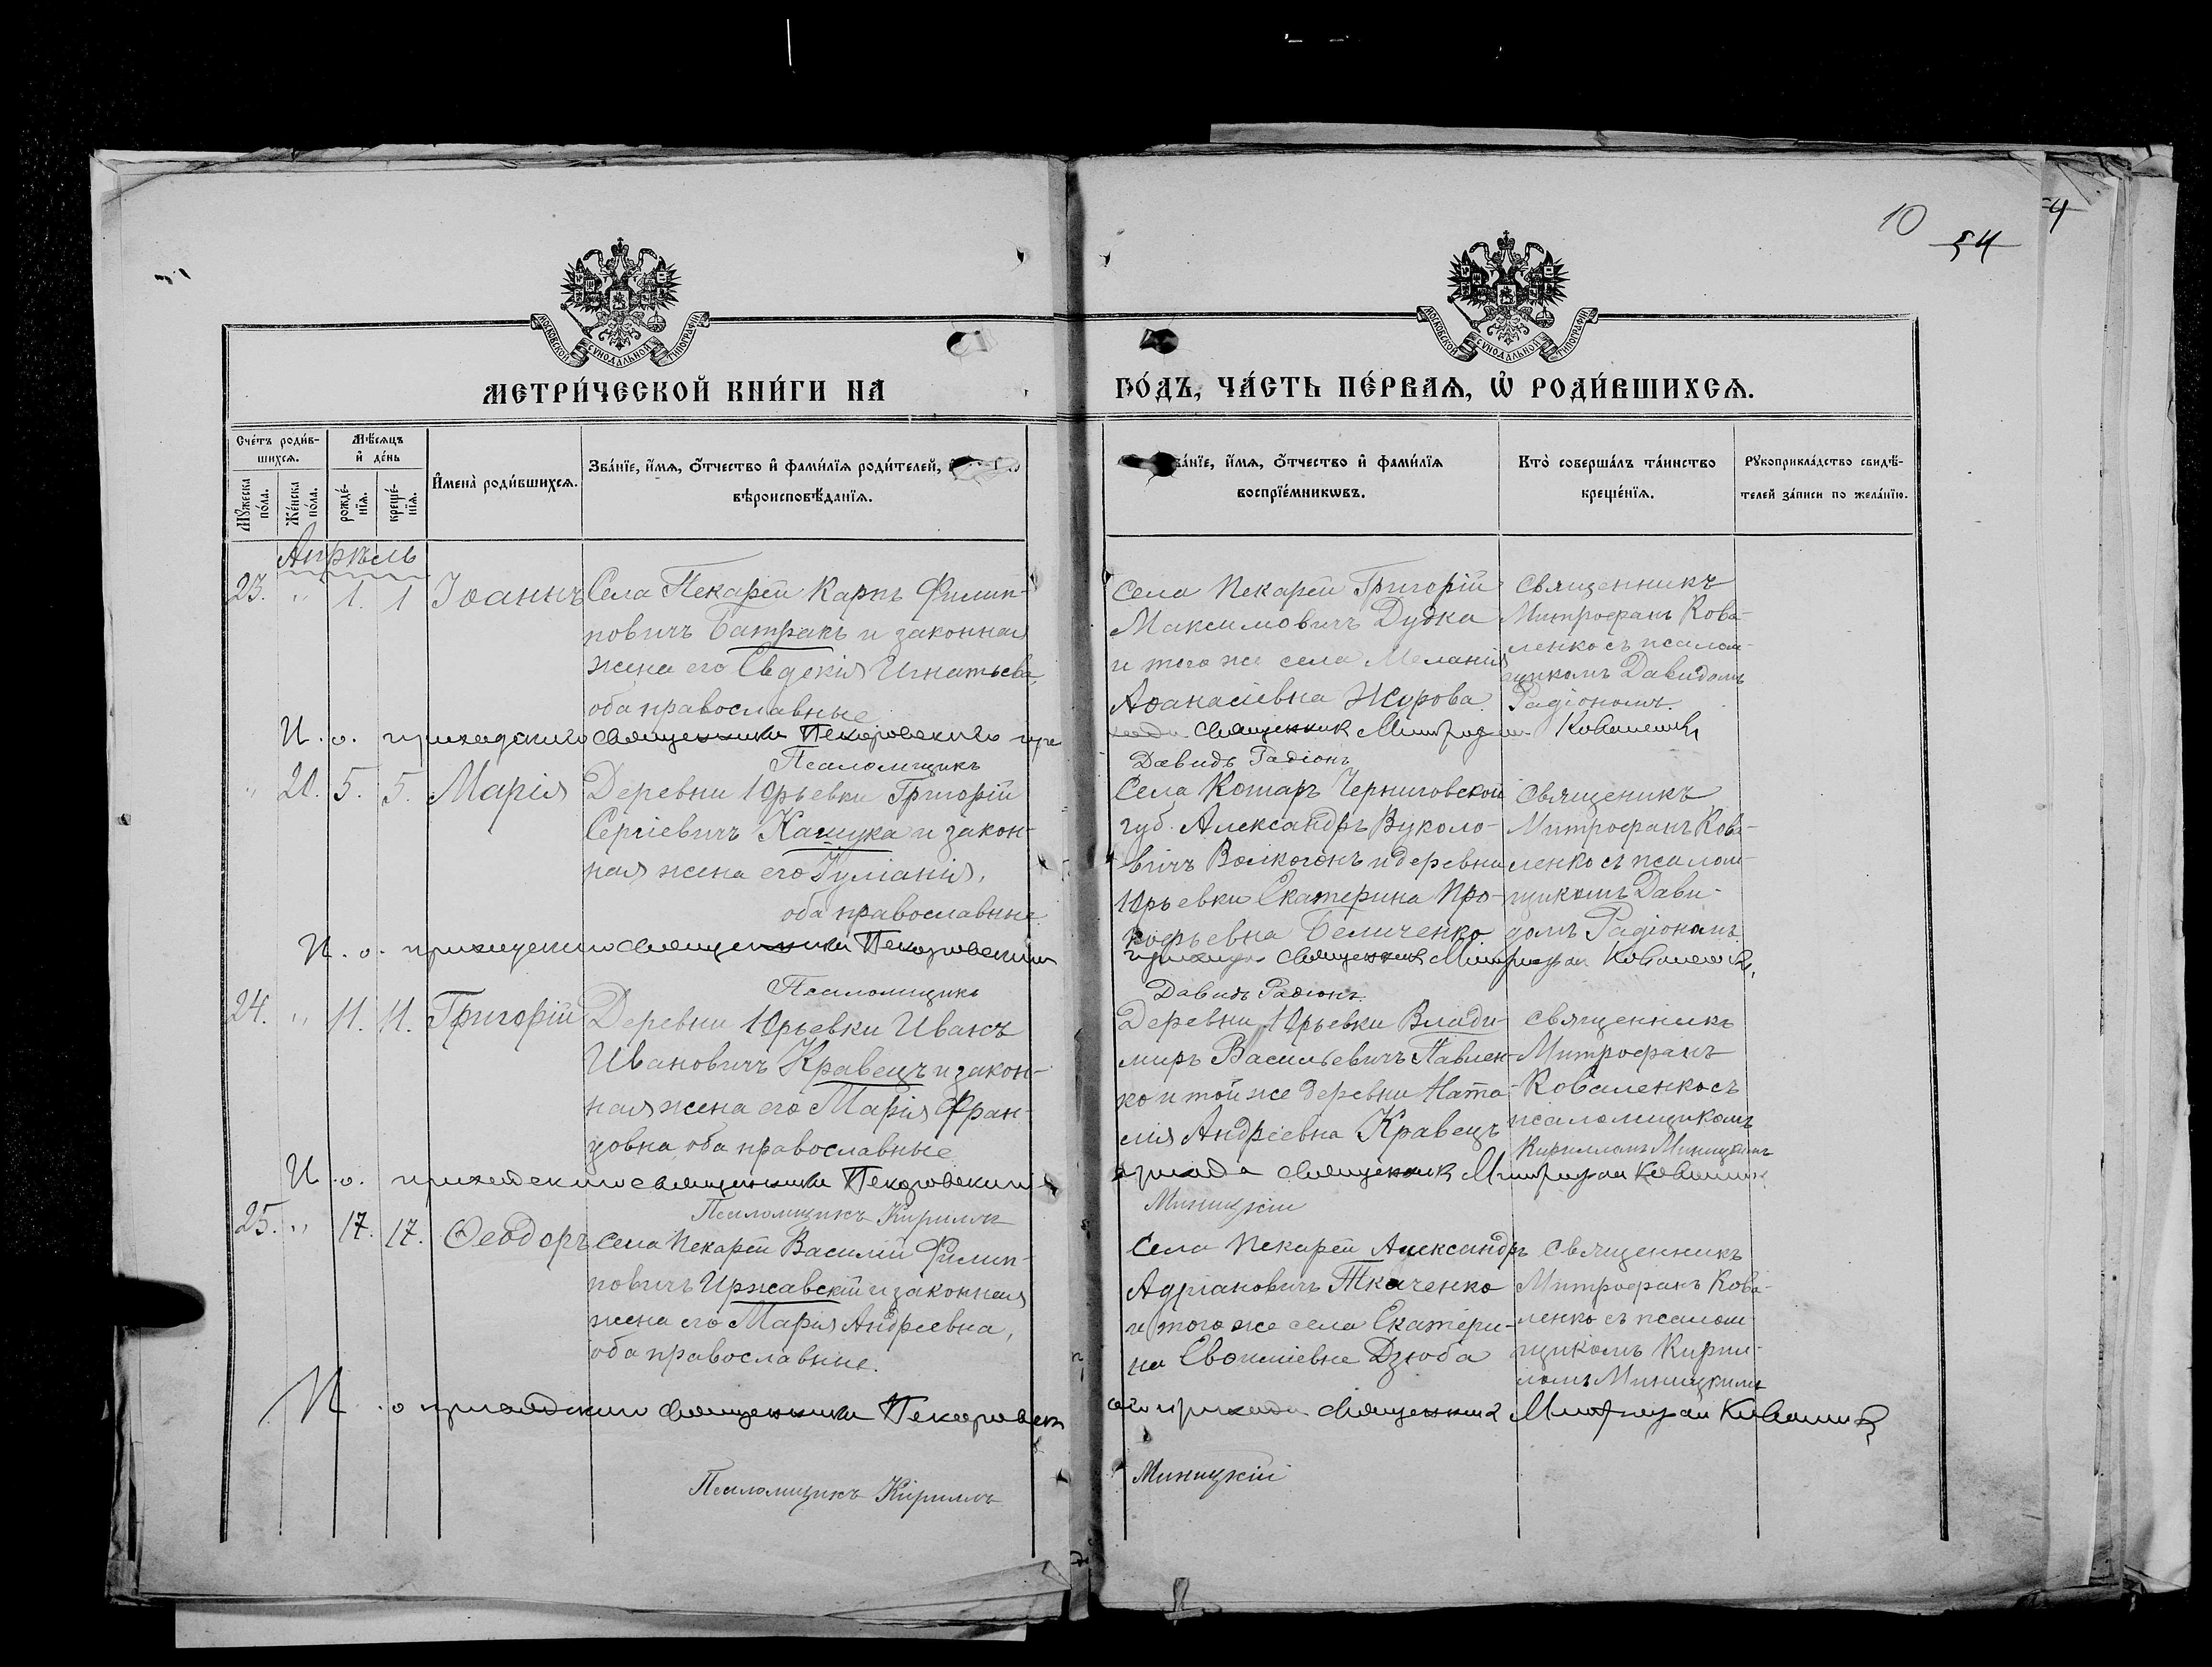 10
54
4
МОСКОВСКОЙ СѴНОДАЛЬНОЙ ТИПОГРАФІИ
МОСКОВСКОЙ СѴНОДАЛЬНОЙ ТИПОГРАФІИ
МЕТРИ́ЧЕСКОЙ КНИ́ГИ НА
ГО́ДЪ, ЧА́СТЬ ПЕ́РВАѦ, Ѡ҆ РОДИ́ВШИХСѦ.
Сче́тъ роди́в-
шихсѧ.
Мꙋжеска по́ла.
Же́нска по́ла.
Мѣ́сѧцъ и҆ де́нь
рожде́-нїѧ.
креще́-нїѧ.
И҆мена̀ роди́вшихсѧ.
Зва́нїе, и҆́мѧ, ѻ҆́тчество и҆ фами́лїѧ роди́телей,
вѣроисповѣ́данїѧ.
ва́нїе, и҆́мѧ, ѻ҆́тчество и҆ фами́лїѧ
воспрїе́мникѡвъ.
Кто̀ соверша́лъ та́инство
креще́нїѧ.
Рꙋкоприкла́дство свидѣ́-
телей за́писи по жела́нїю.
Апрѣль
23. " 1. 1 Іоаннъ
Села Пекарей Карпъ Филип-
повичъ Батракъ и законная
жена его Евдокія Игнатьева,
оба православные
Села Пекарей Григорій
Максимовичъ Дудка
и того же села Меланія
Аѳанасіевна Журова.
Священникъ
Митрофанъ Кова-
ленко съ псалом-
щикомъ Давидомъ
Радіономъ.
И. о. приходского священника Пекаровского при
хода священник Митрофан Коваленко
Псаломщикъ
Давидъ Радіонъ
" 20. 5. 5. Марія
Деревни Юрьевки Григорій
Сергіевичъ Кашука и закон-
ная жена его Іуліанія,
оба православные
Села Котаръ Черниговской
губ. Александръ Вуколо-
вичъ Волкогонъ и деревни
Юрьевки Екатерина Про-
кофьевна Беличенко.
Священикъ
Митрофанъ Кова-
ленко съ псалом-
щикомъ Дави-
домъ Радіономъ.
И. о. приходского священника Пекаровского
прихода священник Митрофан Коваленко
Псаломщикъ
Давидъ Радіонъ.
24. " 11. 11. Григорій
Деревни Юрьевки Иванъ
Ивановичъ Кравецъ и закон-
ная жена его Марія Фран-
цовна, оба православные
Деревни Юрьевки Влади-
миръ Васильевичъ Павлен-
ко и той же деревни Ната-
лія Андреевна Кравецъ
Священникъ
Митрофанъ
Коваленко съ
псаломщикомъ
Кирилломъ Миницкимъ
И. о. приходского священника Пекаровского
прихода священник Митрофан Коваленко
Псаломщикъ Кириллъ
Миницкій
25. " 17. 17. Ѳеодоръ
Села Пекарей Василій Филип-
повичъ Иржавскій и законная
жена его Марія Андреевна,
оба православные.
Села Пекарей Александръ
Адріановичъ Ткаченко
и того же села Екатери-
на Дзюба
Священникъ
Митрофанъ Кова-
ленко съ псалом
щикомъ Кирил-
ломъ Миницкимъ
И. о приходского священника Пекаровск
ого прихода священник Митрофан Коваленко
Псаломщикъ Кириллъ
Миницкій